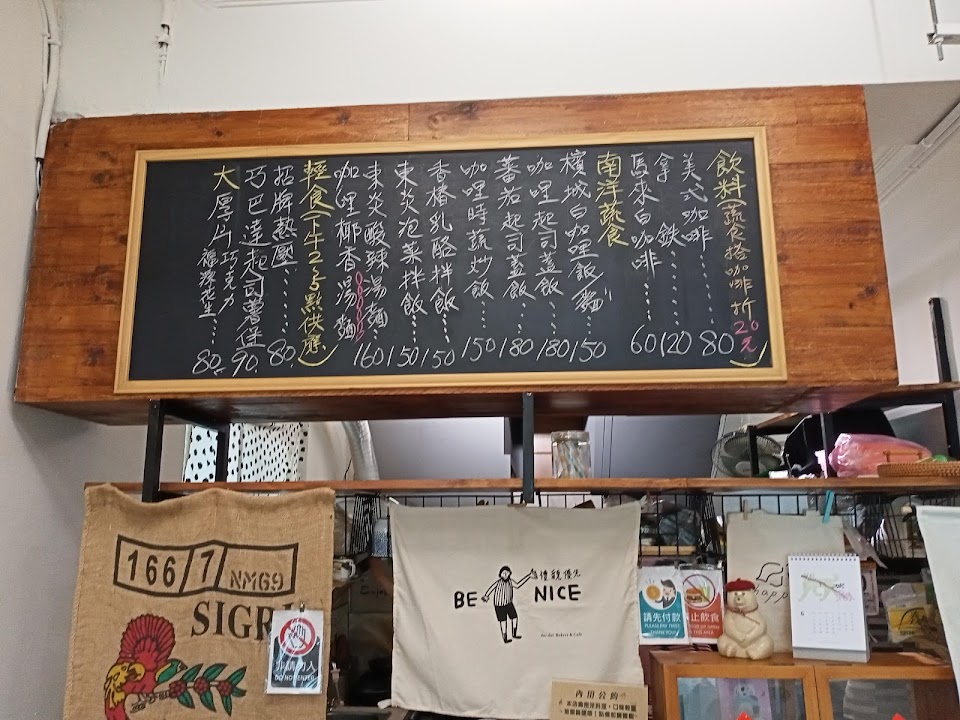 飲料(蔬食搭咖啡折20元)
美式咖啡……80
拿鐵……120
馬來白咖啡……60
南洋蔬食
檳城白咖哩飯(麵)……150
咖哩起司蓋飯……180
蕃茄起司蓋飯……180
咖哩時蔬炒飯……150
香椿乳酪拌飯……150
東炎泡菜拌飯……150
東炎酸辣湯麵
咖哩椰香湯麵 160
輕食(下午2~5點供應)
招牌熱國……80.
巧巴達起司薯堡 90.
大厚片 巧克力
福源花生……80.
166/7/NM69
SIGRI
非請勿入
DO NOT ENTER
禮貌優先
BE NICE
請先付款
PLEASE PAY FIRST
THANK YOU
禁止飲食
happ
6
內用公約